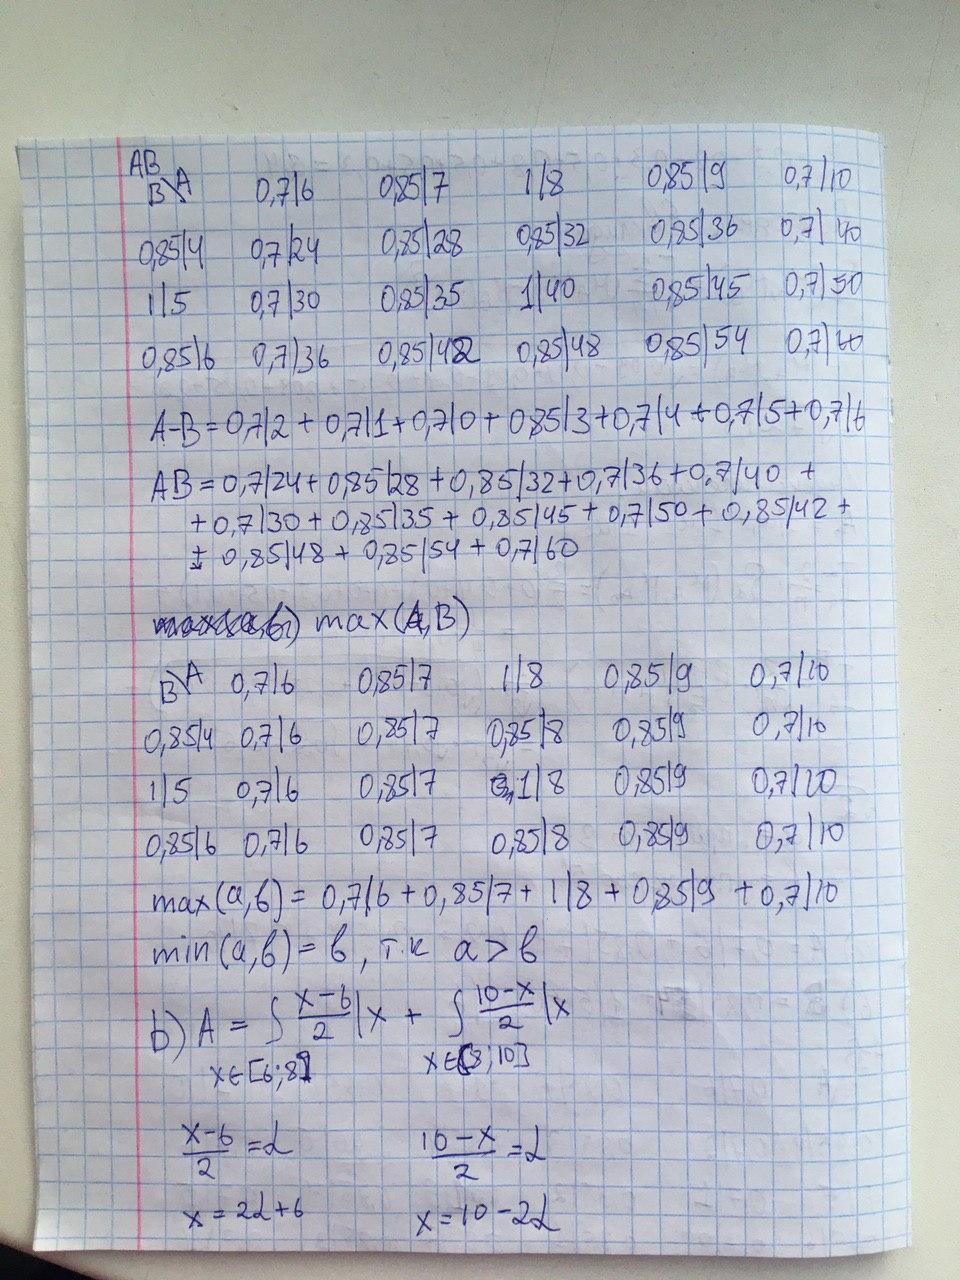 AB
B\A 0,7|6 0,85|7 1|8 0,85|9 0,7|10
0,85|4 0,7|24 0,85|28 0,85|32 0,85|36 0,7|40
1|5 0,7|30 0,85|35 1|40 0,85|45 0,7|50
0,85|6 0,7|36 0,85|42 0,85|48 0,85|54 0,7|60
A-B = 0,7|2 + 0,7|1 + 0,7|0 + 0,85|3 + 0,7|4 + 0,7|5 + 0,7|6
AB = 0,7|24 + 0,85|28 + 0,85|32 + 0,7|36 + 0,7|40 +
+ 0,7|30 + 0,85|35 + 0,85|45 + 0,7|50 + 0,85|42 +
+ 0,85|48 + 0,85|54 + 0,7|60
max(A,B)
B\A 0,7|6 0,85|7 1|8 0,85|9 0,7|10
0,85|4 0,7|6 0,85|7 0,85|8 0,85|9 0,7|10
1|5 0,7|6 0,85|7 1|8 0,85|9 0,7|10
0,85|6 0,7|6 0,85|7 0,85|8 0,85|9 0,7|10
max(a,b) = 0,7|6 + 0,85|7 + 1|8 + 0,85|9 + 0,7|10
min(a,b) = b, т.к a > b
b) A = ∫ (x-6)/2 |x + ∫ (10-x)/2 |x
x∈[6;8] x∈[8;10]
(x-6)/2 = α (10-x)/2 = α
x = 2α+6 x = 10-2α